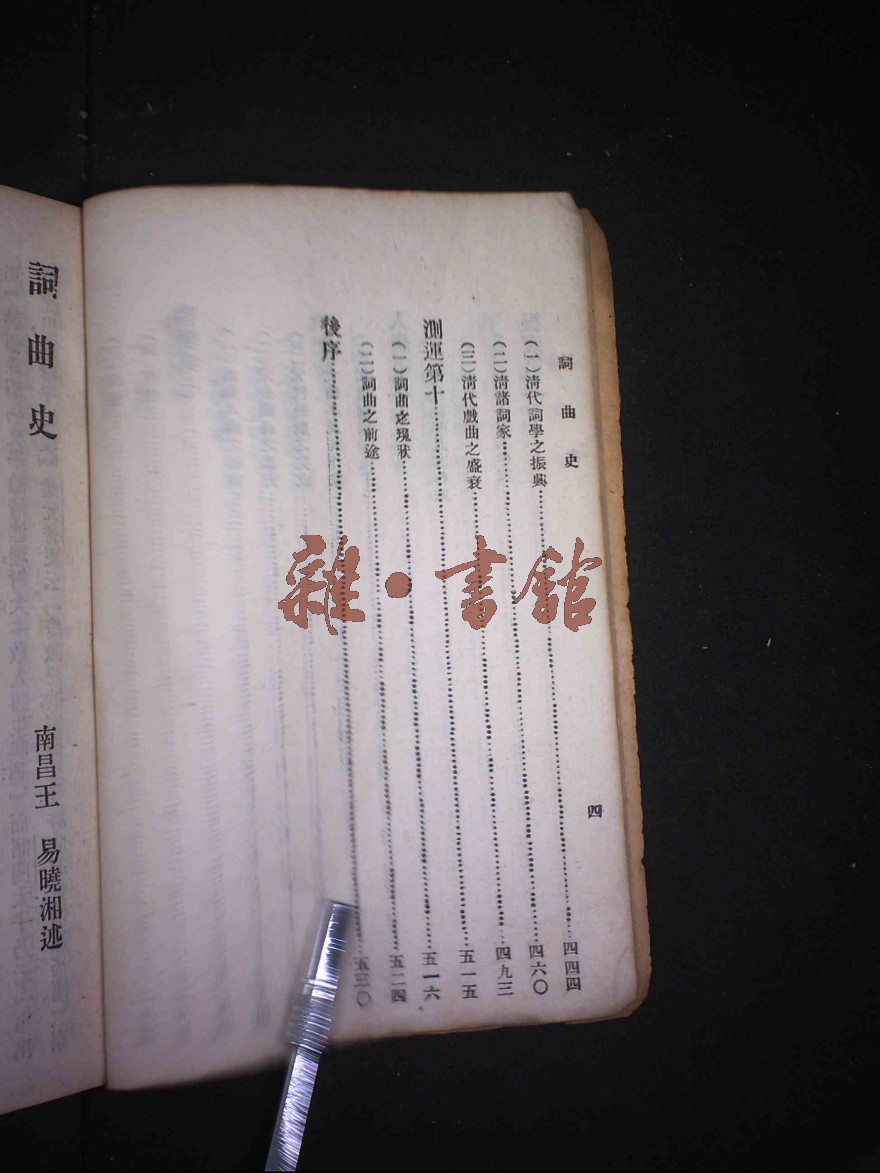 詞曲史
四
(一)清代詞學之振興……四四四
(二)清諸詞家……四六〇
(三)清代戲曲之盛衰……四九三
測運第十……五一五
(一)詞曲之現狀……五一六
(二)詞曲之前途……五二四
後序……五三〇
詞曲史
南昌王 易曉湘述
雜·書館